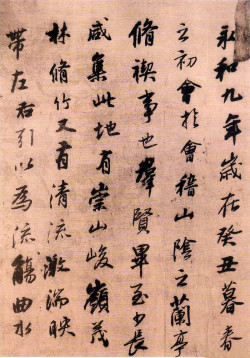 永和九年歲在癸丑暮春
之初會於會稽山陰之蘭亭
脩禊事也羣賢畢至少長
咸集此地有崇山峻嶺茂
林脩竹又有清流激湍映
帶左右引以為流觴曲水